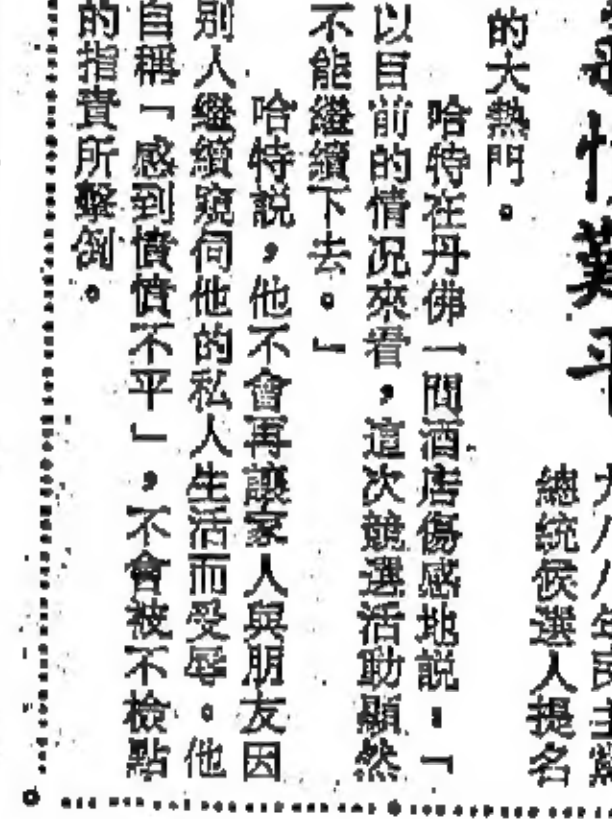 情難平
八八年民主黨
總統候選人提名
的大熱門。
哈特在丹佛一間酒店傷感地説：「
以目前的情況來看，這次競選活動顯然
不能繼續下去。」
哈特説，他不會再讓家人與朋友因
別人繼續窺伺他的私人生活而受辱。他
自稱「感到憤憤不平」，不會被不檢點
的指責所擊倒。